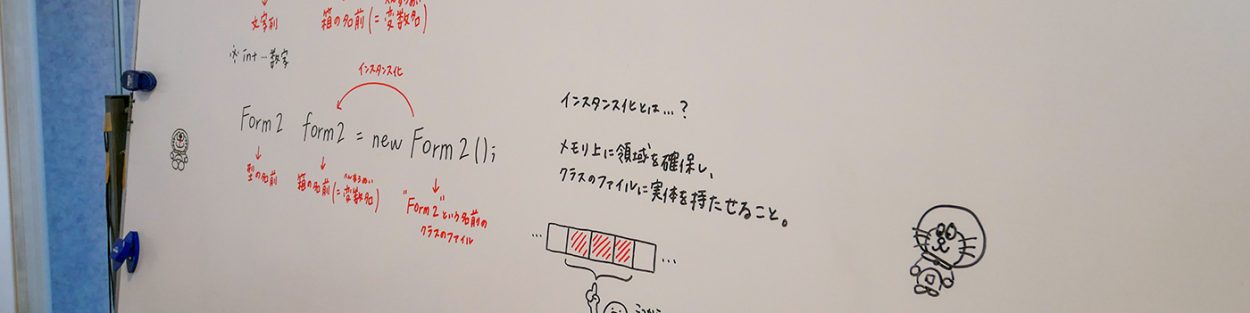 文字列
箱の名前(=変数名)
※int…数字
インスタンス化
Form2 form2 = new Form2();
型の名前
へんすうめい
箱の名前(=変数名)
"Form2"という名前の
クラスのファイル
インスタンス化とは…?
メモリ上に領域を確保し、
クラスのファイルに実体を持たせること。
… …